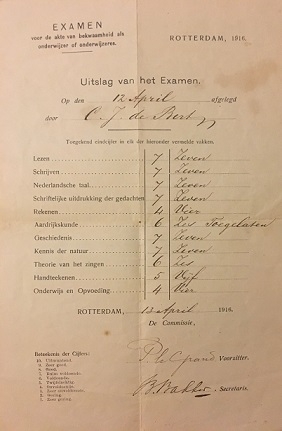 EXAMEN
voor de akte van bekwaamheid als
onderwijzer of onderwijzeres.
ROTTERDAM, 1916.
Uitslag van het Examen.
Op den 12 April afgelegd
door C. J. de
Toegekend eindcijfer in elk der hieronder vermelde vakken.
Lezen 7 Zeven
Schrijven 7 Zeven
Nederlandsche taal 7 Zeven
Schriftelijke uitdrukking der gedachten 7 Zeven
Rekenen 4 Vier
Aardrijkskunde 6 Zes Toegelaten
Geschiedenis 7 Zeven
Kennis der natuur 7 Zeven
Theorie van het zingen 6 Zes
Handteekenen 5 Vijf
Onderwijs en Opvoeding 4 Vier
ROTTERDAM, 13 April 1916.
De Commissie,
Voorzitter.
Bakker Secretaris.
Beteekenis der Cijfers:
10. Uitmuntend.
9. Zeer goed.
8. Goed.